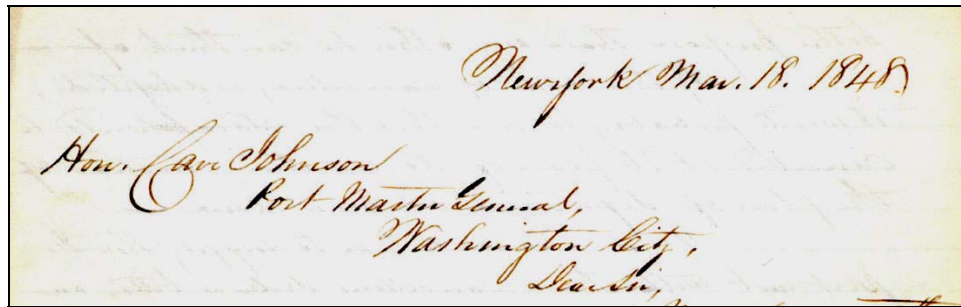 Newyork Mar. 18. 1848.
Hon. Cave Johnson
Post Master General,
Washington City,
Dear Sir,